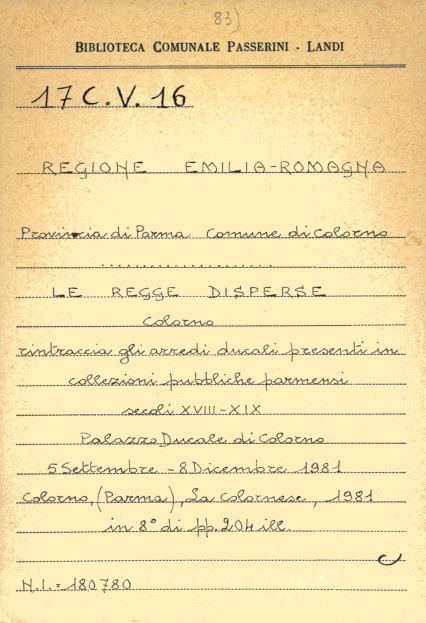 83)
BIBLIOTECA COMUNALE PASSERINI - LANDI
17 C. V. 16
REGIONE EMILIA-ROMAGNA
Provincia di Parma Comune di Colorno
......................
LE REGGE DISPERSE
Colorno
rintraccia gli arredi ducali presenti in
collezioni pubbliche parmensi
secoli XVIII-XIX
Palazzo Ducale di Colorno
5 Settembre - 8 Dicembre 1981
Colorno, (Parma), La Colornese, 1981
in 8° di pp. 204 ill.
N.I. = 180780